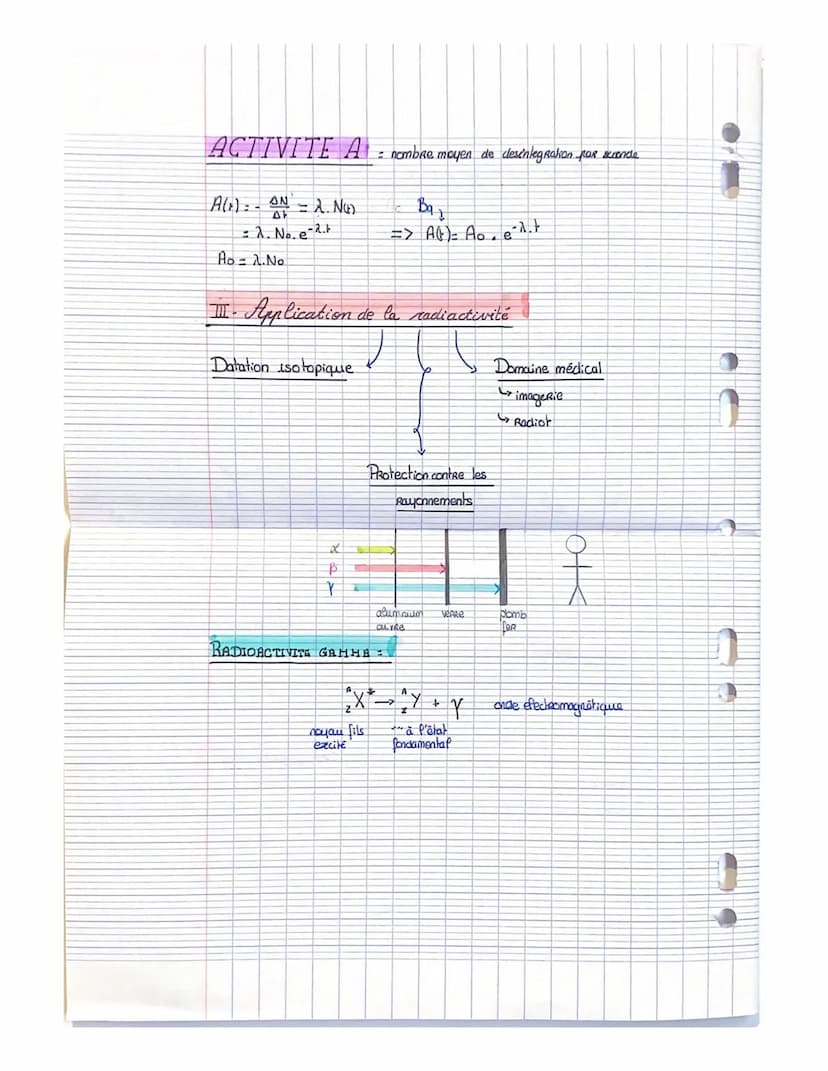 ACTIVITE A : = nombre moyen de desintegration par seconde
A(t) = - ΔN/Δt = λ. N(t) Bq
= λ. No. e^-λ.t => A(t) = Ao . e^-λ.t
Ao = λ.No
III - Application de la radiactivité
Datation isotopique
Domaine médical
↳ imagerie
↳ Radiot
Protection contre les
Rayonnements
α
β
γ
aluminium verre plomb
cuivre fer
RADIOACTIVITE GAMMA :
A Z X* → A Z Y + γ onde electromagnétique
noyau fils --- à l'état
excité fondamental